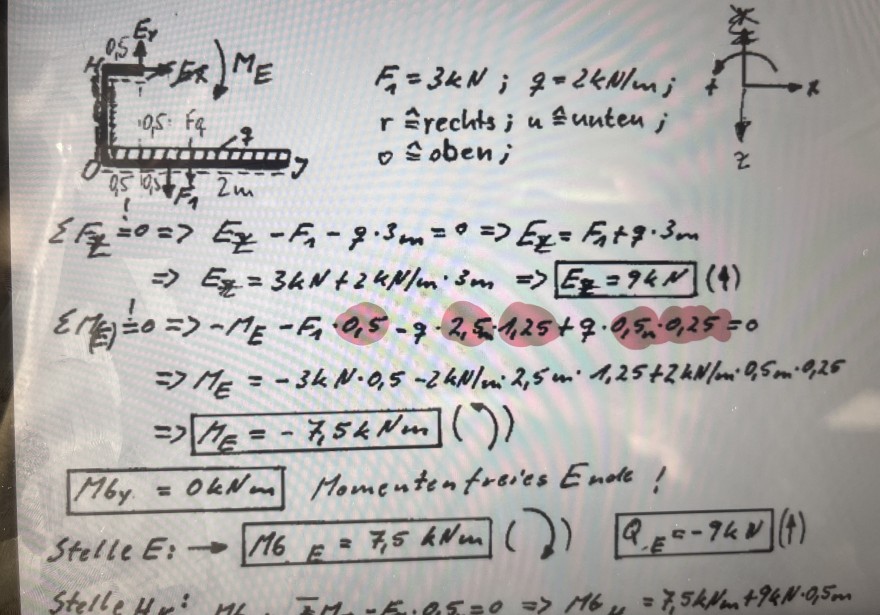 0,5 E_z
H E_x M_E
0,5 F_q q
O J
0,5 0,5 F₁ 2m
F₁ = 3kN ; q = 2kN/m ;
r ≙ rechts ; u ≙ unten ;
o ≙ oben ;
+ x
z
ΣF_z != 0 => E_z - F₁ - q·3m = 0 => E_z = F₁ + q·3m
=> E_z = 3kN + 2kN/m·3m => E_z = 9kN (↑)
ΣM_(E) != 0 => -M_E - F₁·0,5 - q·2,5m·1,25 + q·0,5m·0,25 = 0
=> M_E = -3kN·0,5 - 2kN/m·2,5m·1,25 + 2kN/m·0,5m·0,25
=> M_E = -7,5kNm
Mby = 0kNm Momentenfreies Ende !
Stelle E: → Mb E = 7,5 kNm Q_E = -9kN (↑)
= 7,5kNm + 9kN·0,5m